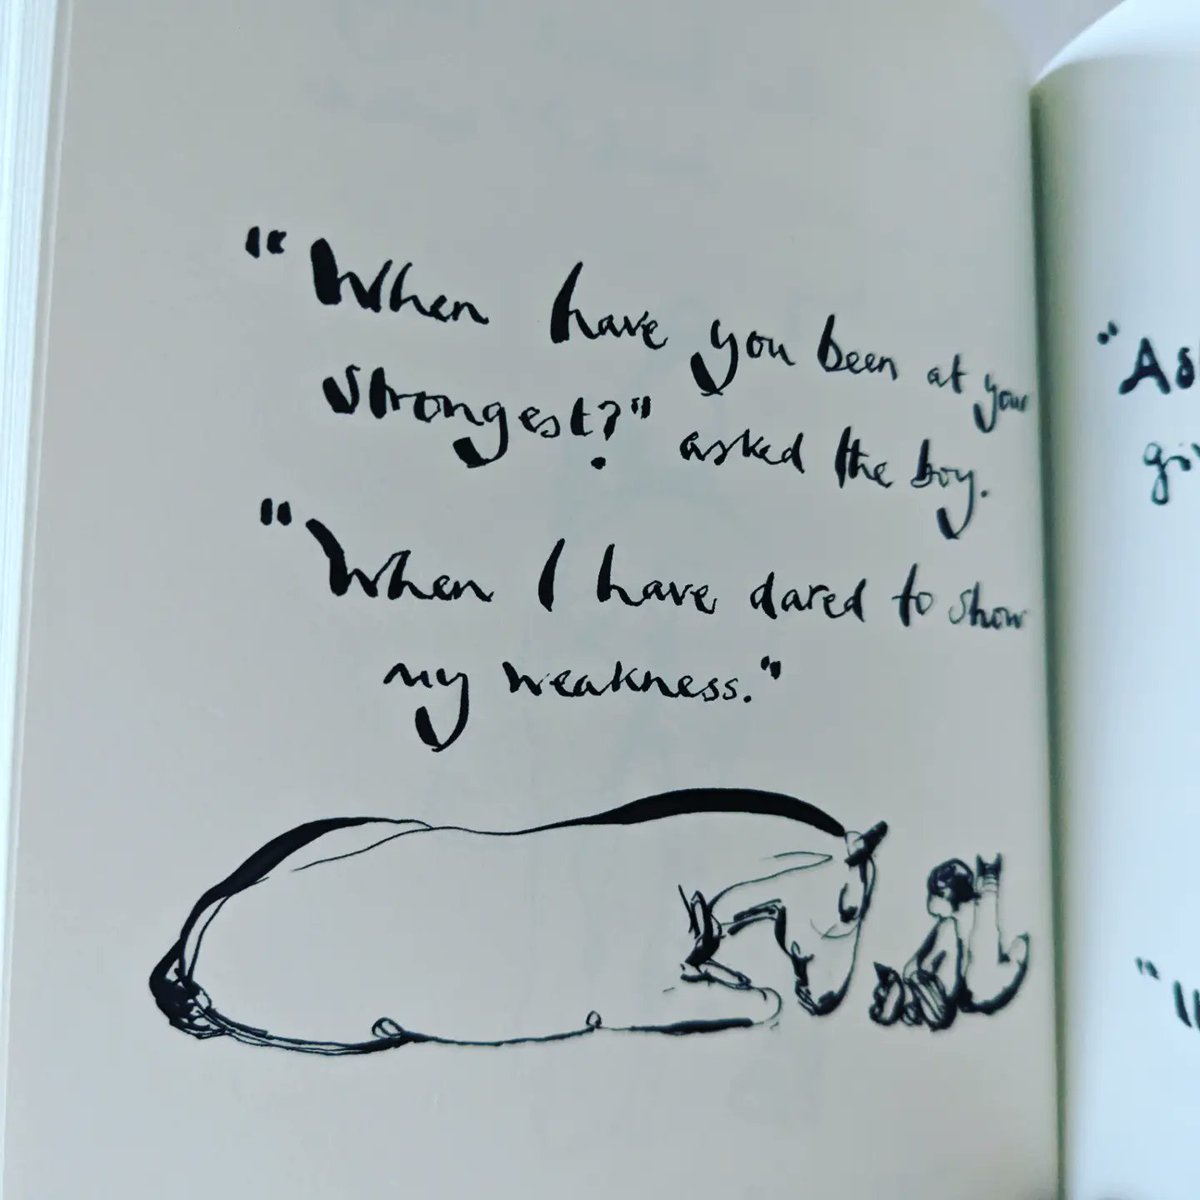 "When have you been at your
strongest?" asked the boy.
"When I have dared to show
my weakness."